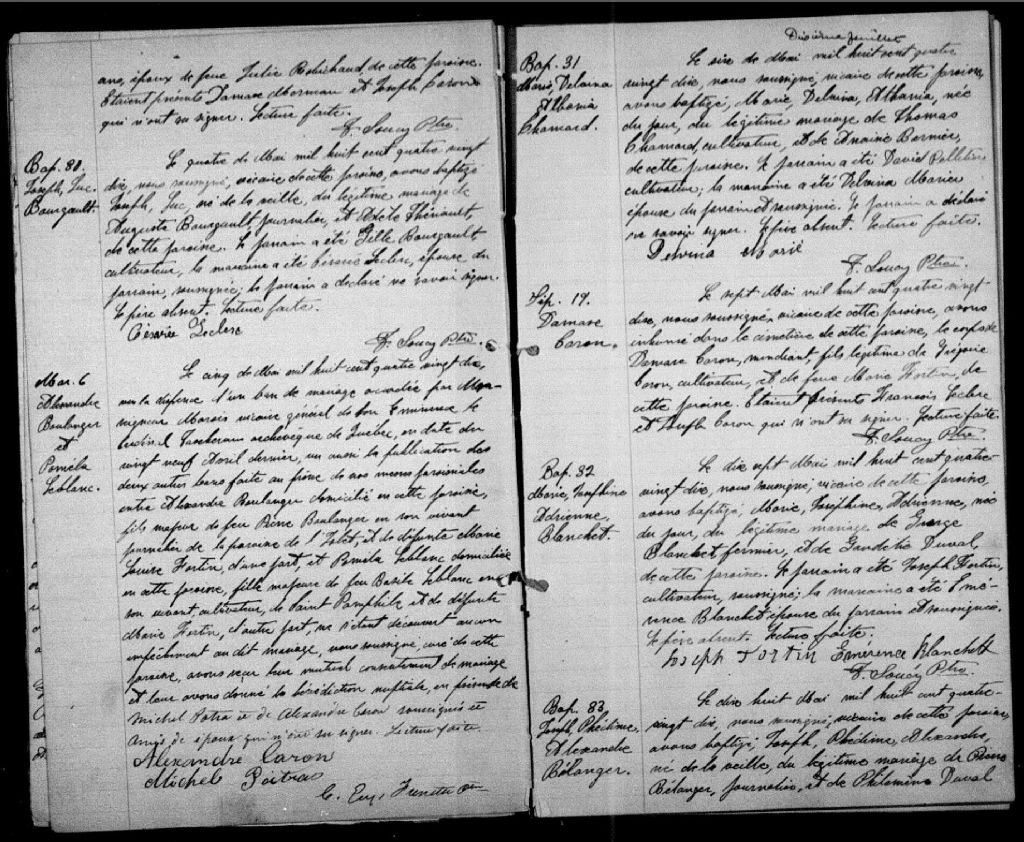 ans, époux de feue Julie Robichaud, de cette paroisse.
Etaient présents Damase Morneau et Joseph Caron
qui n'ont su signer. Lecture faite.
F. Soucy Ptre.
Bap. 80.
Joseph, Luc.
Bourgault.
Le quatre de Mai mil huit cent quatre vingt
dix, nous soussigné, vicaire de cette paroisse, avons baptisé
Joseph, Luc, né de la veille, du légitime mariage de
Auguste Bourgault, journalier, et Adèle Thériault,
de cette paroisse. Le parrain a été Bourgault,
cultivateur, la marraine a été Césarie Leclerc, épouse du
parrain, soussignée; le parrain a déclaré ne savoir signer.
Le père absent. Lecture faite.
Césarie Leclerc
F. Soucy Ptre.
Mar. 6
Alexandre
Boulanger
et
Paméla
Leblanc.
Le cinq de Mai mil huit cent quatre vingt dix,
vu la dispense d'un ban de mariage accordée par Mon-
signeur Marois vicaire général de Son Eminence le
Cardinal Taschereau archevêque de Québec, en date du
vingt neuf Avril dernier, vu aussi la publication des
deux autres bans faite au prône de nos messes paroissiales
entre Alexandre Boulanger domicilié en cette paroisse,
fils majeur de feu Boulanger en son vivant
journalier de la paroisse de l'Islet, et de défunte Marie
Louise Fortin, d'une part, et Paméla Leblanc domiciliée
en cette paroisse, fille majeure de feu Basile Leblanc en
son vivant, cultivateur, de Saint Pamphile et de défunte
Marie Fortin, d'autre part, ne s'étant découvert aucun
empêchement au dit mariage, nous soussigné curé de cette
paroisse, avons reçu leur mutuel consentement de mariage
et leur avons donné la bénédiction nuptiale, en présence de
Michel et de Alexandre Caron soussignés et
amis de époux qui n'ont su signer. Lecture faite
Alexandre Caron
Michel Poitras
C. Eug. Ptre
Dixième feuillet
Bap. 31
Marie, Delvina
Athania
Chamard.
Le six de Mai mil huit cent quatre
vingt dix, nous soussigné, vicaire de cette paroisse,
avons baptisé, Marie, Delvina, Athania, née
du jour, du légitime mariage de Thomas
Chamard, cultivateur, et de Bernier,
de cette paroisse. Le parrain a été David Pelletier
cultivateur; la marraine a été Delvina
épouse du parrain et soussignée. Le parrain a déclaré
ne savoir signer. Le père absent. Lecture faite.
Delvina
F. Soucy Ptre.
Sép. 19.
Damase
Caron.
Le sept Mai mil huit cent quatre vingt
dix, nous soussigné, vicaire de cette paroisse, avons
inhumé dans le cimetière de cette paroisse, le corps de
Damase Caron, mendiant, fils légitime de Grégoire
Caron, cultivateur, et de feue Marie Fortin, de
cette paroisse. Etaient présents François Leclerc
et Joseph Caron qui n'ont su signer. Lecture faite.
F. Soucy Ptre.
Bap. 82
Marie, Joséphine
Adrienne,
Blanchet.
Le dix sept Mai mil huit cent quatre-
vingt dix, nous soussigné, vicaire de cette paroisse,
avons baptisé; Marie, Joséphine, Adrienne, née
du jour, du légitime mariage de George
Blanchet fermier, et de Duval
de cette paroisse. Le parrain a été Joseph Fortin,
cultivateur, soussigné; la marraine a été Emé-
rence Blanchet épouse du parrain et soussignée.
Le père absent. Lecture faite.
Joseph Fortin Emerence Blanchett
F. Soucy Ptre.
Bap. 83,
Joseph, Phédime,
Alexandre
Bélanger.
Le dix huit Mai mil huit cent quatre-
vingt dix, nous soussigné; vicaire de cette paroisse,
avons baptisé; Joseph, Phédime, Alexandre,
né de la veille, du légitime mariage de
Bélanger, journalier, et de Philomène Duval